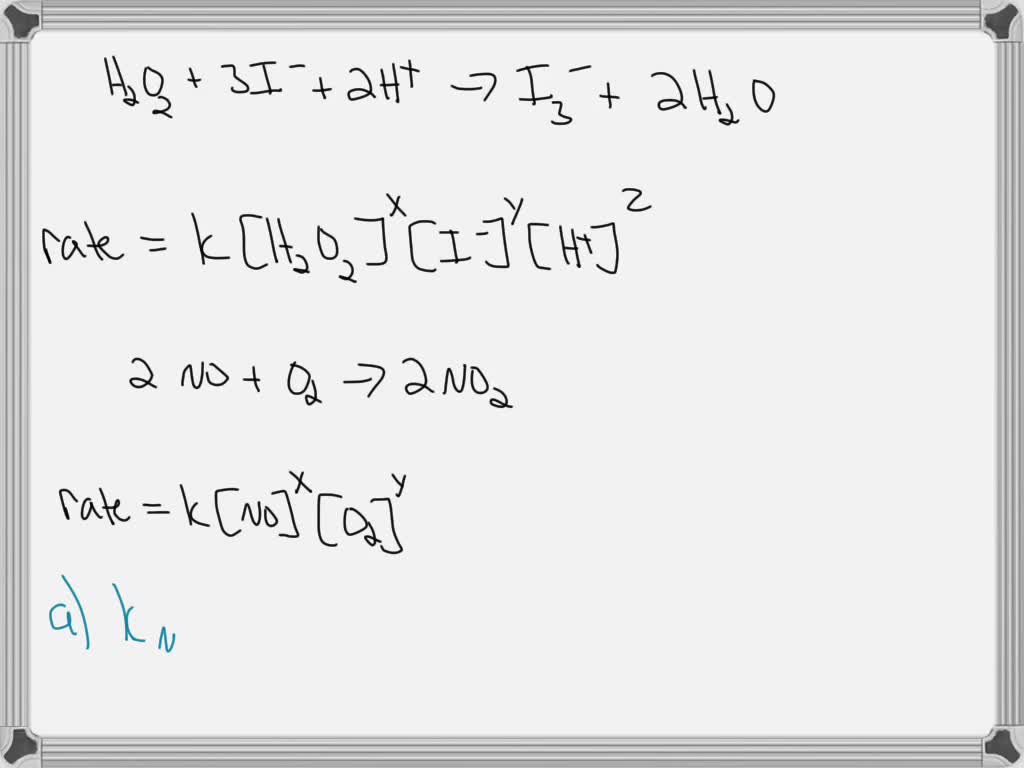 H₂O₂ + 3I⁻ + 2H⁺ → I₃⁻ + 2H₂O
rate = k[H₂O₂]ˣ[I⁻]ʸ[H⁺]ᶻ
2 NO + O₂ → 2NO₂
rate = k[NO]ˣ[O₂]ʸ
a) k_N